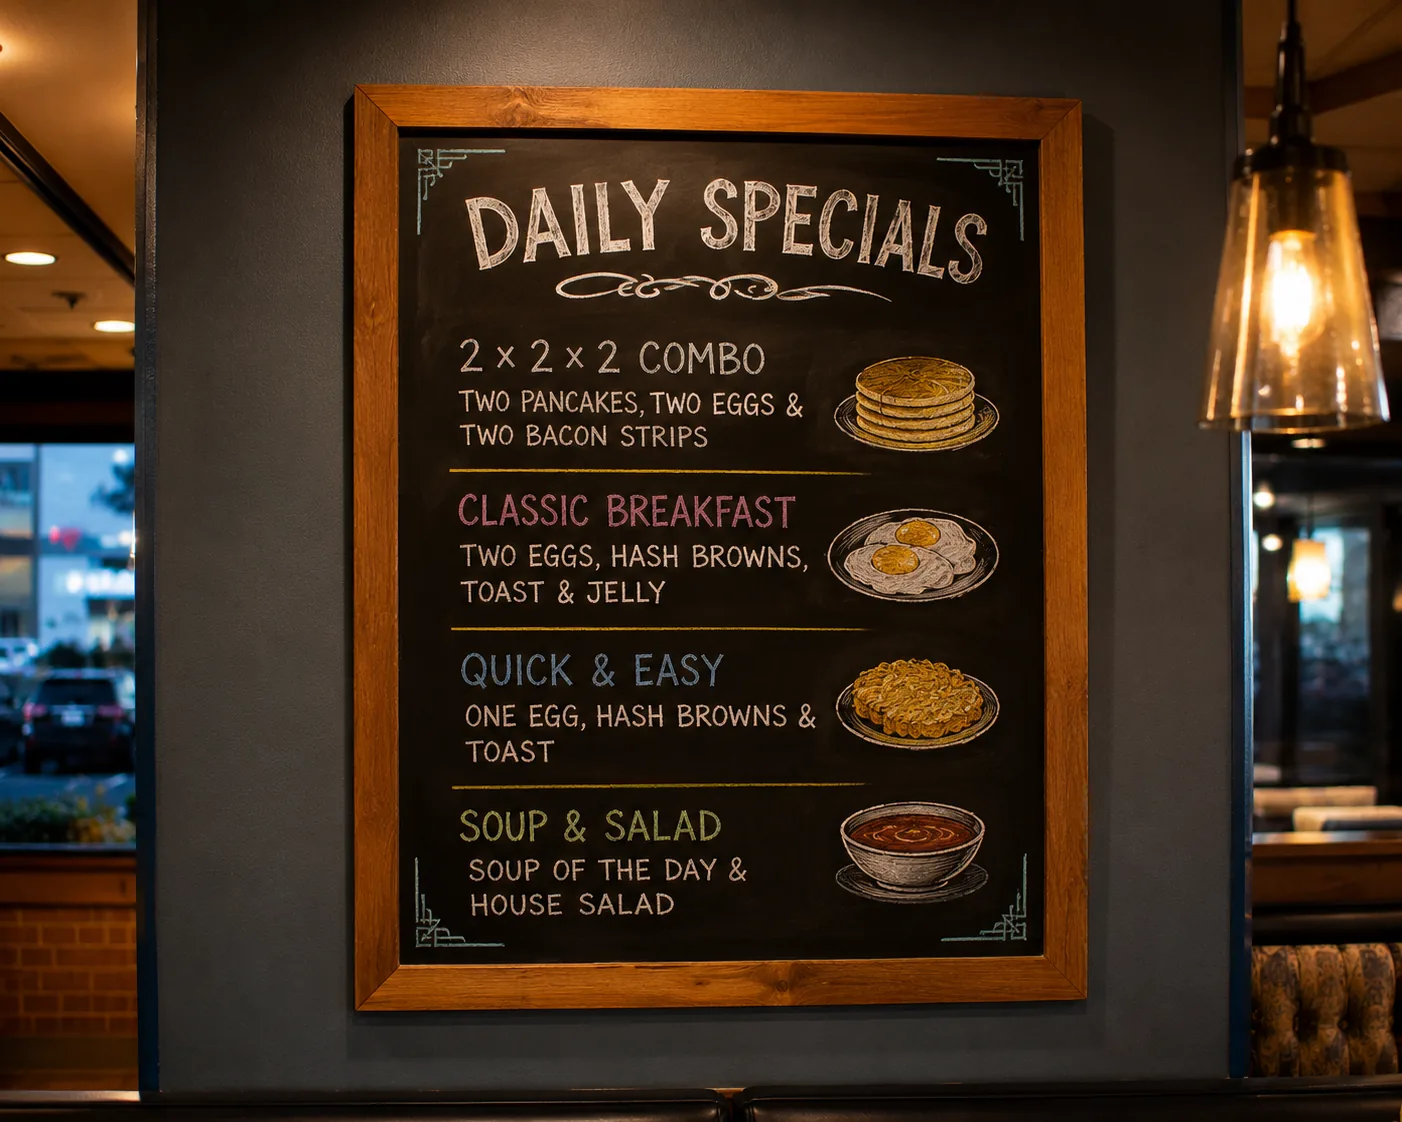 DAILY SPECIALS
2 x 2 x 2 COMBO
TWO PANCAKES, TWO EGGS &
TWO BACON STRIPS
CLASSIC BREAKFAST
TWO EGGS, HASH BROWNS,
TOAST & JELLY
QUICK & EASY
ONE EGG, HASH BROWNS &
TOAST
SOUP & SALAD
SOUP OF THE DAY &
HOUSE SALAD